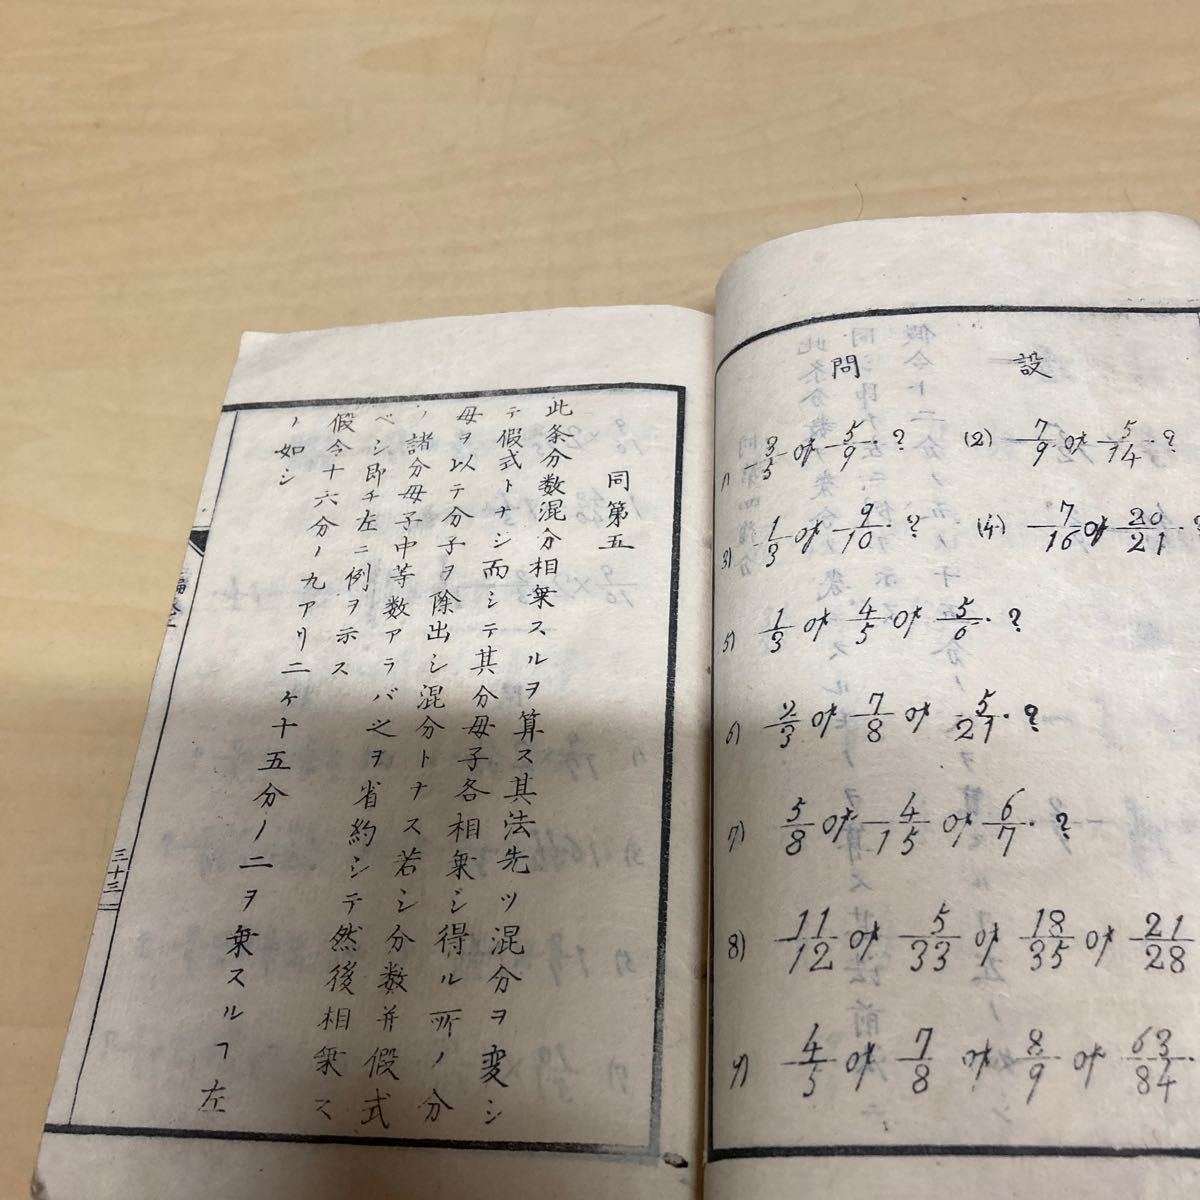 設問
1) 3/5 of 5/9. ?
(2) 7/9 of 5/14. ?
3) 1/3 of 9/10. ?
(4) 7/16 of 20/21. ?
5) 1/3 of 4/5 of 5/6. ?
6) 2/3 of 7/8 of 5/21. ?
7) 5/8 of 4/15 of 6/7. ?
8) 11/12 of 5/33 of 18/35 of 21/28
9) 4/5 of 7/8 of 8/9 of 63/84.
同第五
此条分数混分相乗スルヲ算ス其法先ツ混分ヲ変シ
テ假式トナシ而シテ其分母子各相乗シ得ル所ノ分
母ヲ以テ分子ヲ除出シ混分トナス若シ分数并假式
ノ諸分母子中等数アラバ之ヲ省約シテ然後相乗ス
ベシ即チ左ニ例ヲ示ス
假令十六分ノ九アリ二ヶ十五分ノ二ヲ乗スルヿ左
ノ如シ
三十三